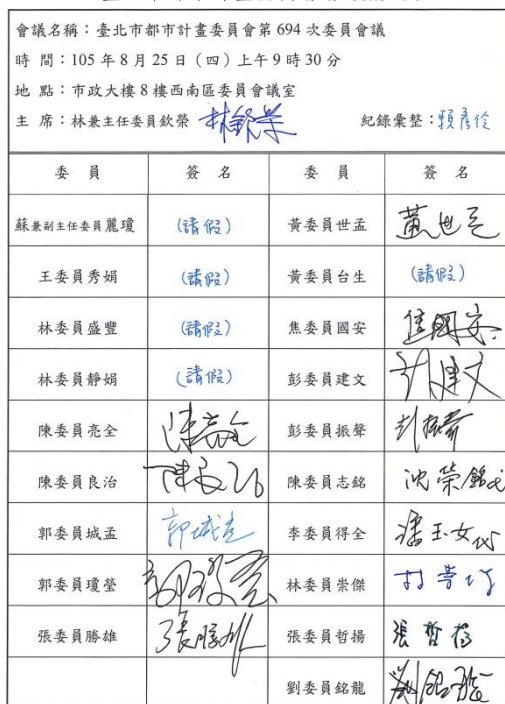 會議名稱：臺北市都市計畫委員會第 694 次委員會議
時 間：105 年 8 月 25 日（四）上午 9 時 30 分
地 點：市政大樓 8 樓西南區委員會議室
主 席：林兼主任委員欽榮 林欽榮 紀錄彙整：賴彥伶
委 員 簽 名 委 員 簽 名
蘇兼副主任委員麗瓊 (請假) 黃委員世孟 黃世孟
王委員秀娟 (請假) 黃委員台生 (請假)
林委員盛豐 (請假) 焦委員國安 焦國安
林委員靜娟 (請假) 彭委員建文 彭建文
陳委員亮全 陳亮全 彭委員振聲 彭振聲
陳委員良治 陳良治 陳委員志銘 沈榮銘代
郭委員城孟 郭城孟 李委員得全 潘玉女代
郭委員瓊瑩 郭瓊瑩 林委員崇傑 林崇傑
張委員勝雄 張勝雄 張委員哲揚 張哲揚
劉委員銘龍 劉銘龍